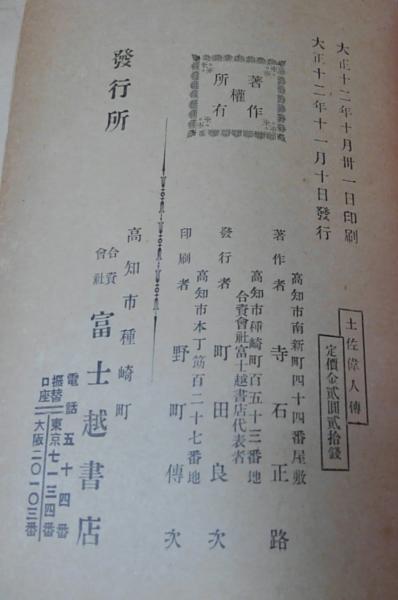 大正十二年十月卅一日印刷
大正十二年十一月十日發行
土佐偉人傳
定價金貳圓貳拾錢
著作
權
所有
高知市南新町四十四番屋敷
著作者 寺石正路
高知市種崎町百五十三番地
合資會社富士越書店代表者
發行者 町田良次
高知市本丁筋百二十七番地
印刷者 野町傳次
發行所
高知市種崎町
合資會社 富士越書店
電話五十四番
振替口座 東京七一三四番
大阪二〇一〇三番